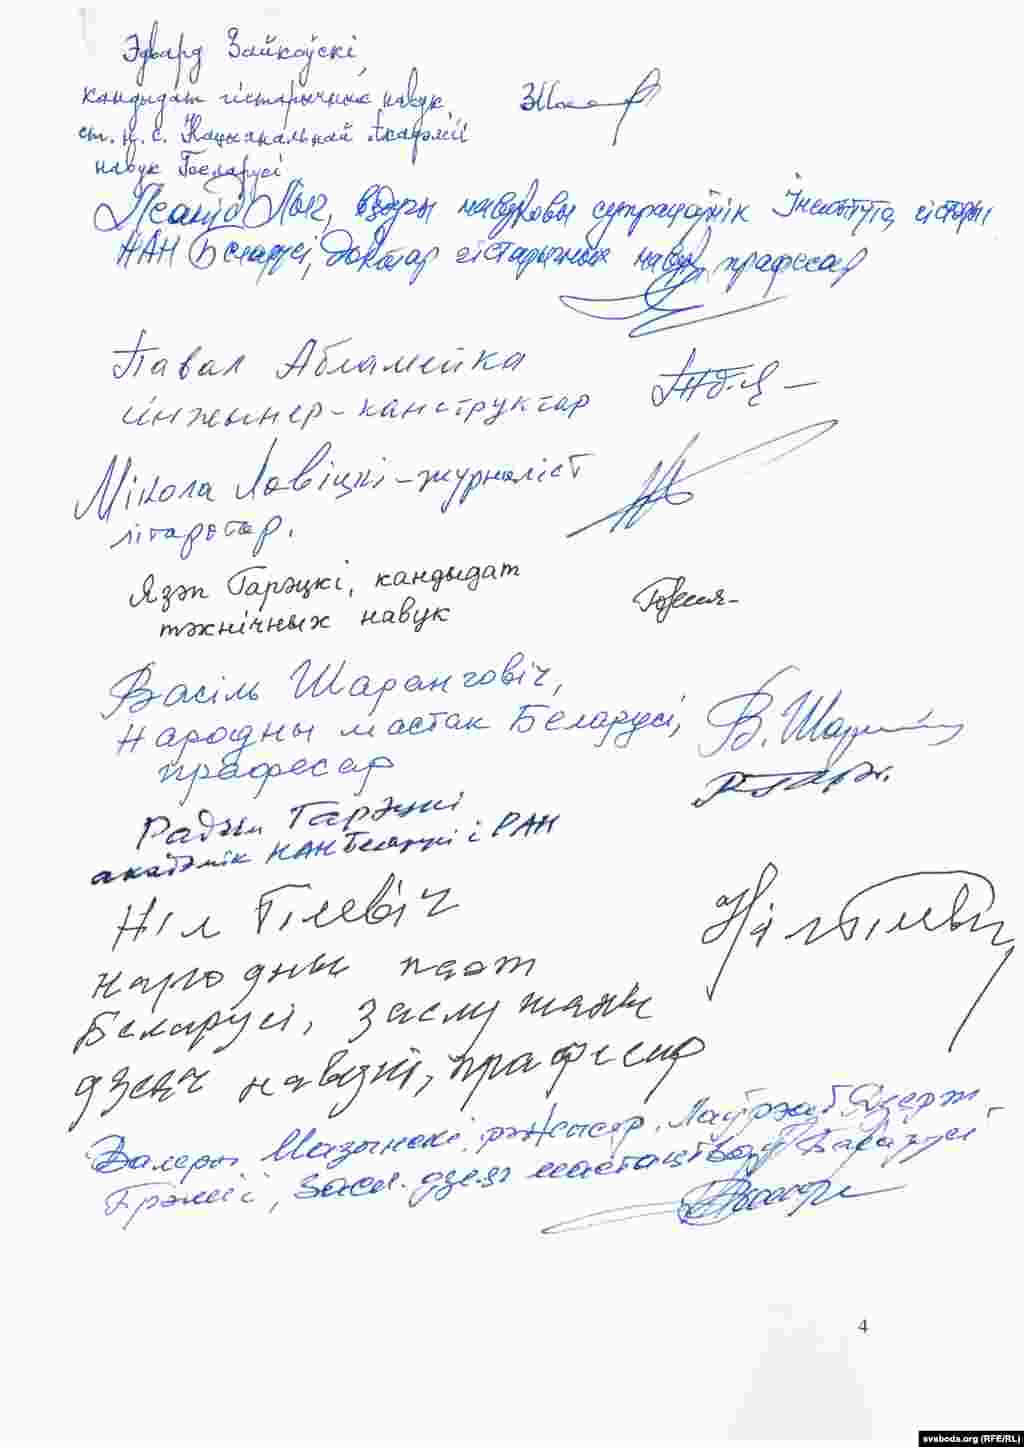 Эдвард Зайкоўскі,
кандыдат гістарычных навук
ст. н. с. Нацыянальнай Акадэміі
навук Беларусі
Леанід Лыч, вядучы навуковы супрацоўнік Інстытута гісторыі
НАН Беларусі, доктар гістарычных навук, прафесар
Павал Абламейка
інжынер-канструктар
Мікола Лавіцкі - журналіст
літаратар.
Язэп Гарэцкі, кандыдат
тэхнічных навук
Васіль Шаранговіч,
Народны мастак Беларусі,
прафесар
В. Шаран
Радзім Гарэцкі
акадэмік НАН Беларусі і РАН
Ніл Гілевіч
Ніл Гілевіч
народны паэт
Беларусі, заслужаны
дзеяч навукі, прафесар
Валеры Мазынскі, рэжысёр, Лаўрэат Дзярж
Прэміі, Засл. дзеяч мастацтваў Беларусі
4
svaboda.org (RFE/RL)